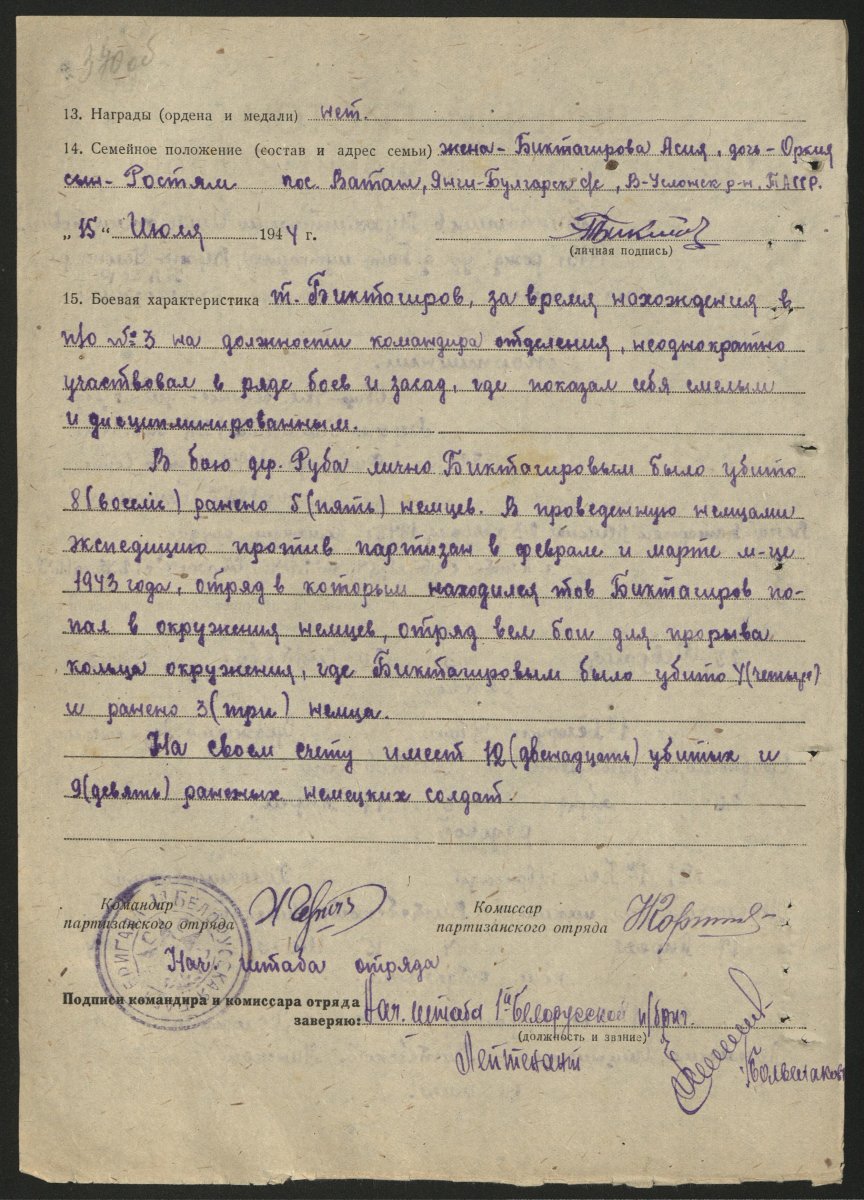 340 об
13. Награды (ордена и медали) нет.
14. Семейное положение (состав и адрес семьи) жена - Биктагирова Асия, дочь - Оркия
сын - Ростям пос. Ватан, Янги-Булгарск с/с, В-Услонск р-н. ТАССР.
„15“ Июля 1944 г.
(личная подпись)
15. Боевая характеристика т. Биктагиров, за время нахождения в
п/о №3 на должности командира отделения, неоднократно
участвовал в ряде боев и засад, где показал себя смелым
и дисциплинированным.
В бою дер. Руба лично Биктагировым было убито
8 (восемь) ранено 5 (пять) немцев. В проведенную немцами
экспедицию против партизан в феврале и марте м-це
1943 года, отряд в которым находился тов Биктагиров по-
пал в окружения немцев, отряд вел бои для прорыва
кольца окружения, где Биктагировым было убито 4 (четыре)
и ранено 3 (три) немца.
На своем счету имеет 12 (двенадцать) убитых и
9 (девять) раненых немецких солдат.
Командир
партизанского отряда
Комиссар
партизанского отряда
Нач. штаба отряда
Подписи командира и комиссара отряда
заверяю: Нач. штаба 1ой Белорусской п/бриг.
(должность и звание)
Лейтенант